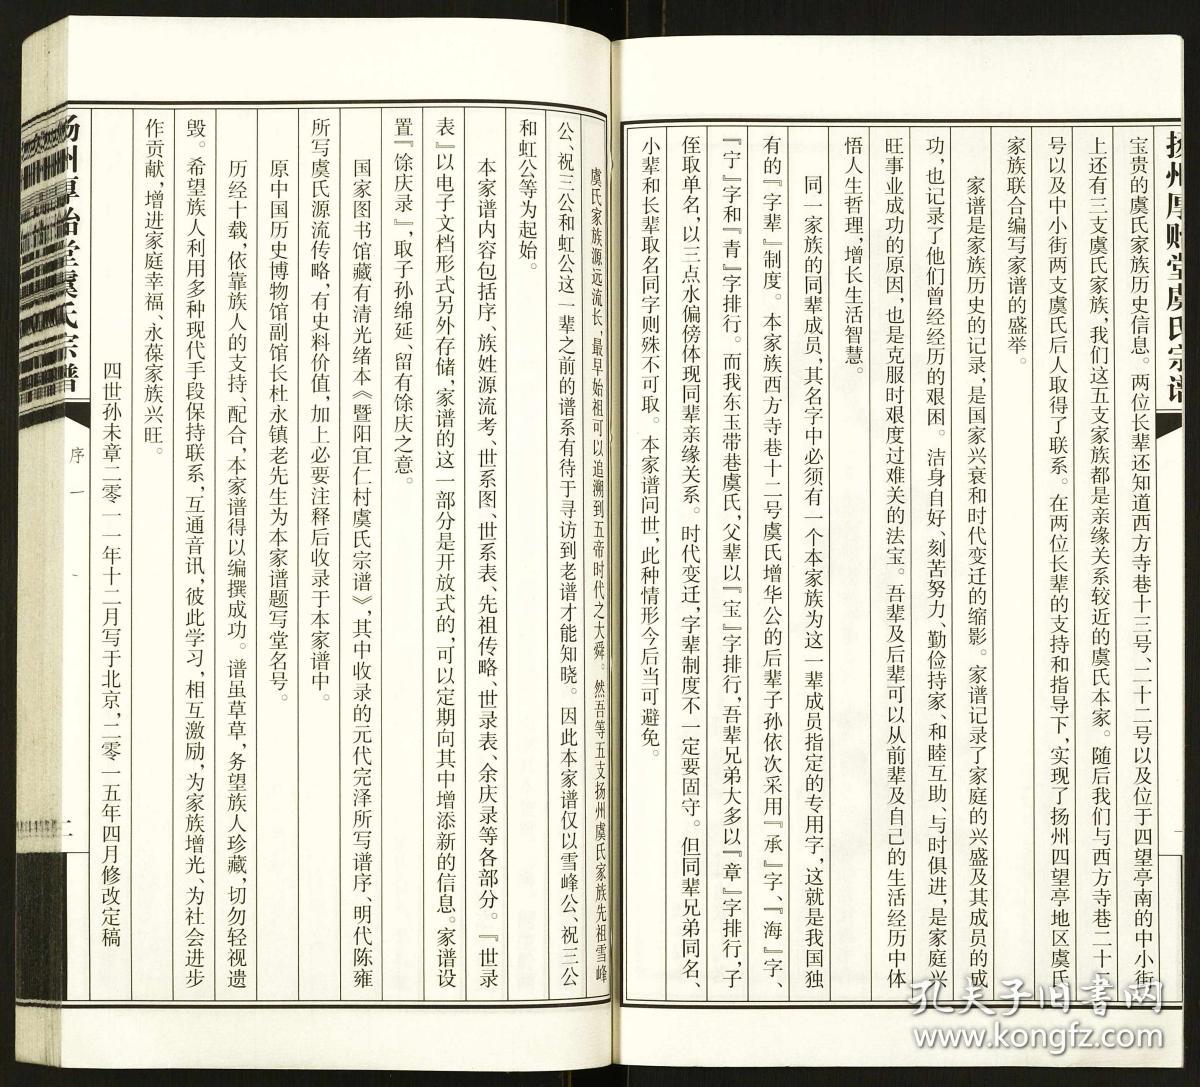 宝贵的虞氏家族历史信息。两位长辈还知道西方寺巷十三号、二十二号以及位于四望亭南的中小街
上还有三支虞氏家族,我们这五支家族都是亲缘关系较近的虞氏本家。随后我们与西方寺巷二十二
号以及中小街两支虞氏后人取得了联系。在两位长辈的支持和指导下,实现了扬州四望亭地区虞氏
家族联合编写家谱的盛举。
家谱是家族历史的记录,是国家兴衰和时代变迁的缩影。家谱记录了家庭的兴盛及其成员的成
功,也记录了他们曾经经历的艰困。洁身自好、刻苦努力、勤俭持家、和睦互助、与时俱进,是家庭兴
旺事业成功的原因,也是克服时艰度过难关的法宝。吾辈及后辈可以从前辈及自己的生活经历中体
悟人生哲理,增长生活智慧。
同一家族的同辈成员,其名字中必须有一个本家族为这一辈成员指定的专用字,这就是我国独
有的『字辈』制度。本家族西方寺巷十二号虞氏增华公的后辈子孙依次采用『承』字、『海』字、
『宁』字和『青』字排行。而我东玉带巷虞氏,父辈以『宝』字排行,吾辈兄弟大多以『章』字排行,子
侄取单名,以三点水偏傍体现同辈亲缘关系。时代变迁,字辈制度不一定要固守。但同辈兄弟同名、
小辈和长辈取名同字则殊不可取。本家谱问世,此种情形今后当可避免。
扬州厚贻堂虞氏宗谱
虞氏家族源远流长,最早始祖可以追溯到五帝时代之大舜。然吾等五支扬州虞氏家族先祖雪峰
公、祝三公和虹公这一辈之前的谱系有待于寻访到老谱才能知晓。因此本家谱仅以雪峰公、祝三公
和虹公等为起始。
本家谱内容包括序、族姓源流考、世系图、世系表、先祖传略、世录表、余庆录等各部分。『世录
表』以电子文档形式另外存储,家谱的这一部分是开放式的,可以定期向其中增添新的信息。家谱设
置『馀庆录』,取子孙绵延、留有馀庆之意。
国家图书馆藏有清光绪本《暨阳宜仁村虞氏宗谱》,其中收录的元代完泽所写谱序、明代陈雍
所写虞氏源流传略,有史料价值,加上必要注释后收录于本家谱中。
原中国历史博物馆副馆长杜永镇老先生为本家谱题写堂名号。
历经十载,依靠族人的支持、配合,本家谱得以编撰成功。谱虽草草,务望族人珍藏,切勿轻视遗
毁。希望族人利用多种现代手段保持联系,互通音讯,彼此学习,相互激励,为家族增光、为社会进步
作贡献,增进家庭幸福、永葆家族兴旺。
四世孙未章二零一一年十二月写于北京,二零一五年四月修改定稿
扬州厚贻堂虞氏宗谱
序一
二
孔夫子旧书网
www.kongfz.com